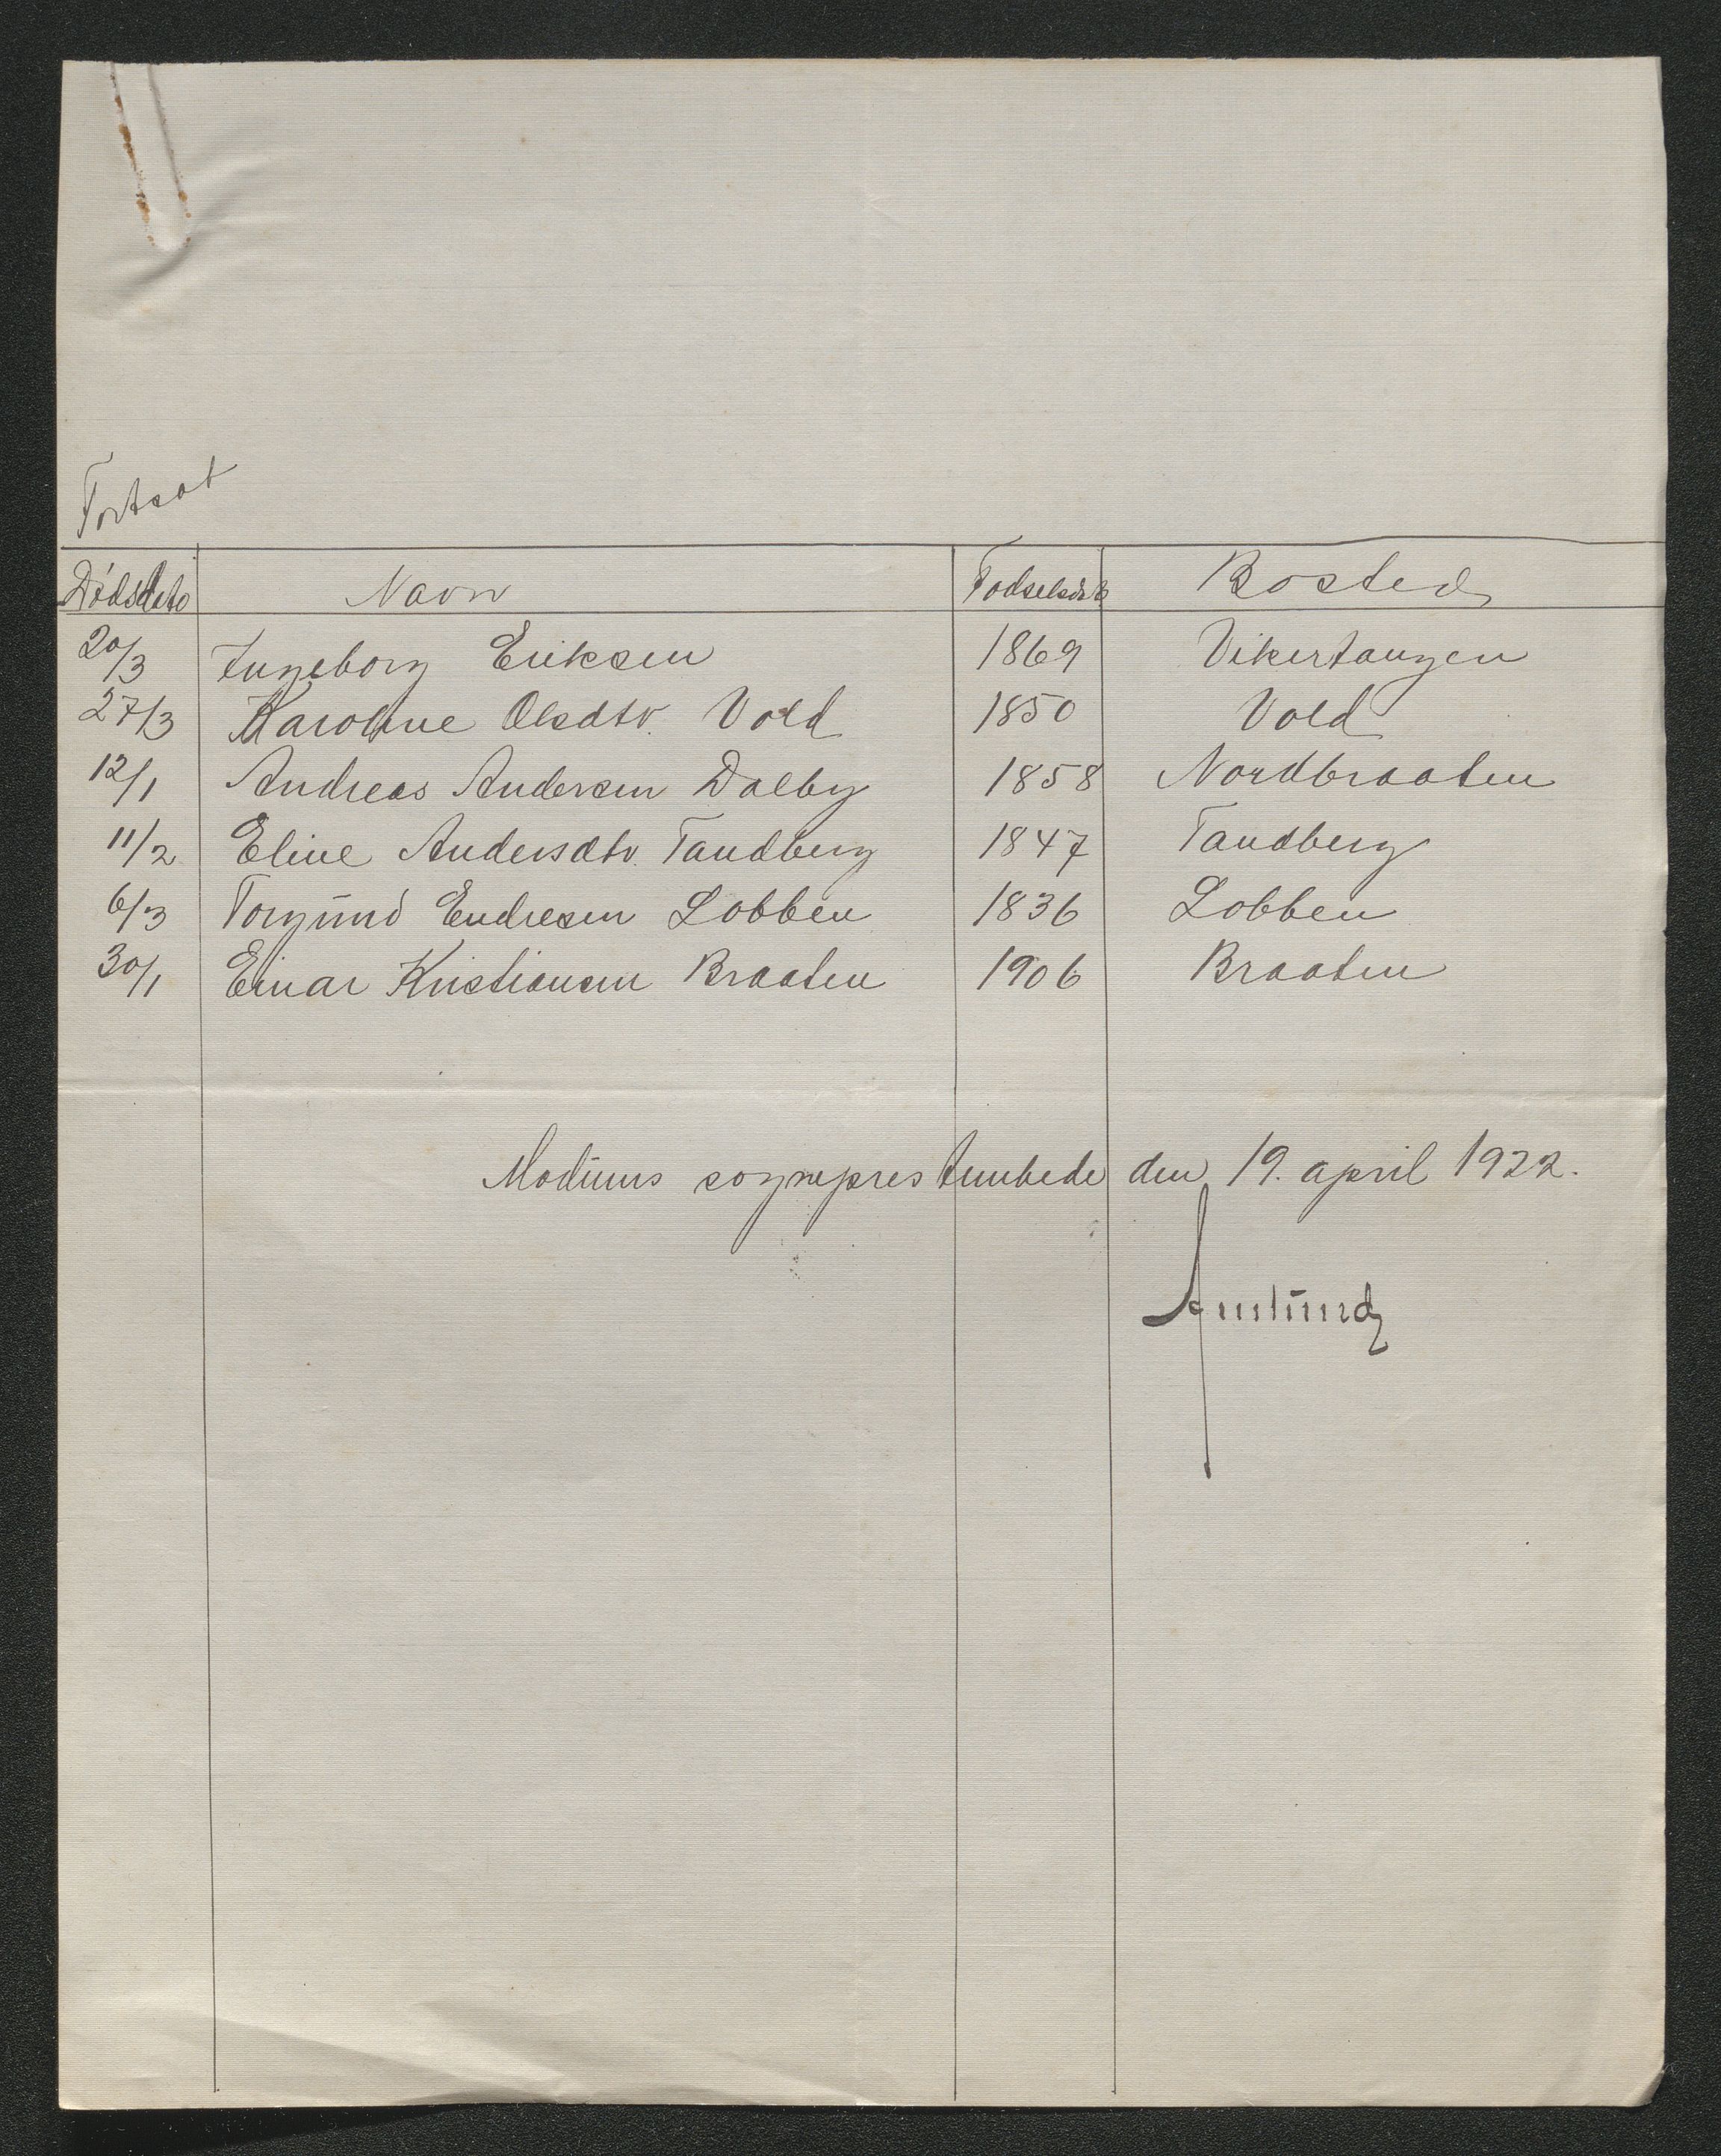 Fortsat
Dødsdato Navn Fødselsdato Bosted
20/3 Ingeborg Eriksen 1869 Vikertangen
27/3 Karoline Olsdtr. Vold 1850 Vold
12/1 Andreas Andersen Dalby 1858 Nordbraaten
11/2 Eline Andersdtr. Tandberg 1847 Tandberg
6/3 Torgund Endresen Lobben 1836 Lobben
30/1 Einar Kristiansen Braaten 1906 Braaten
Modums sogneprestembede den 19. april 1922.